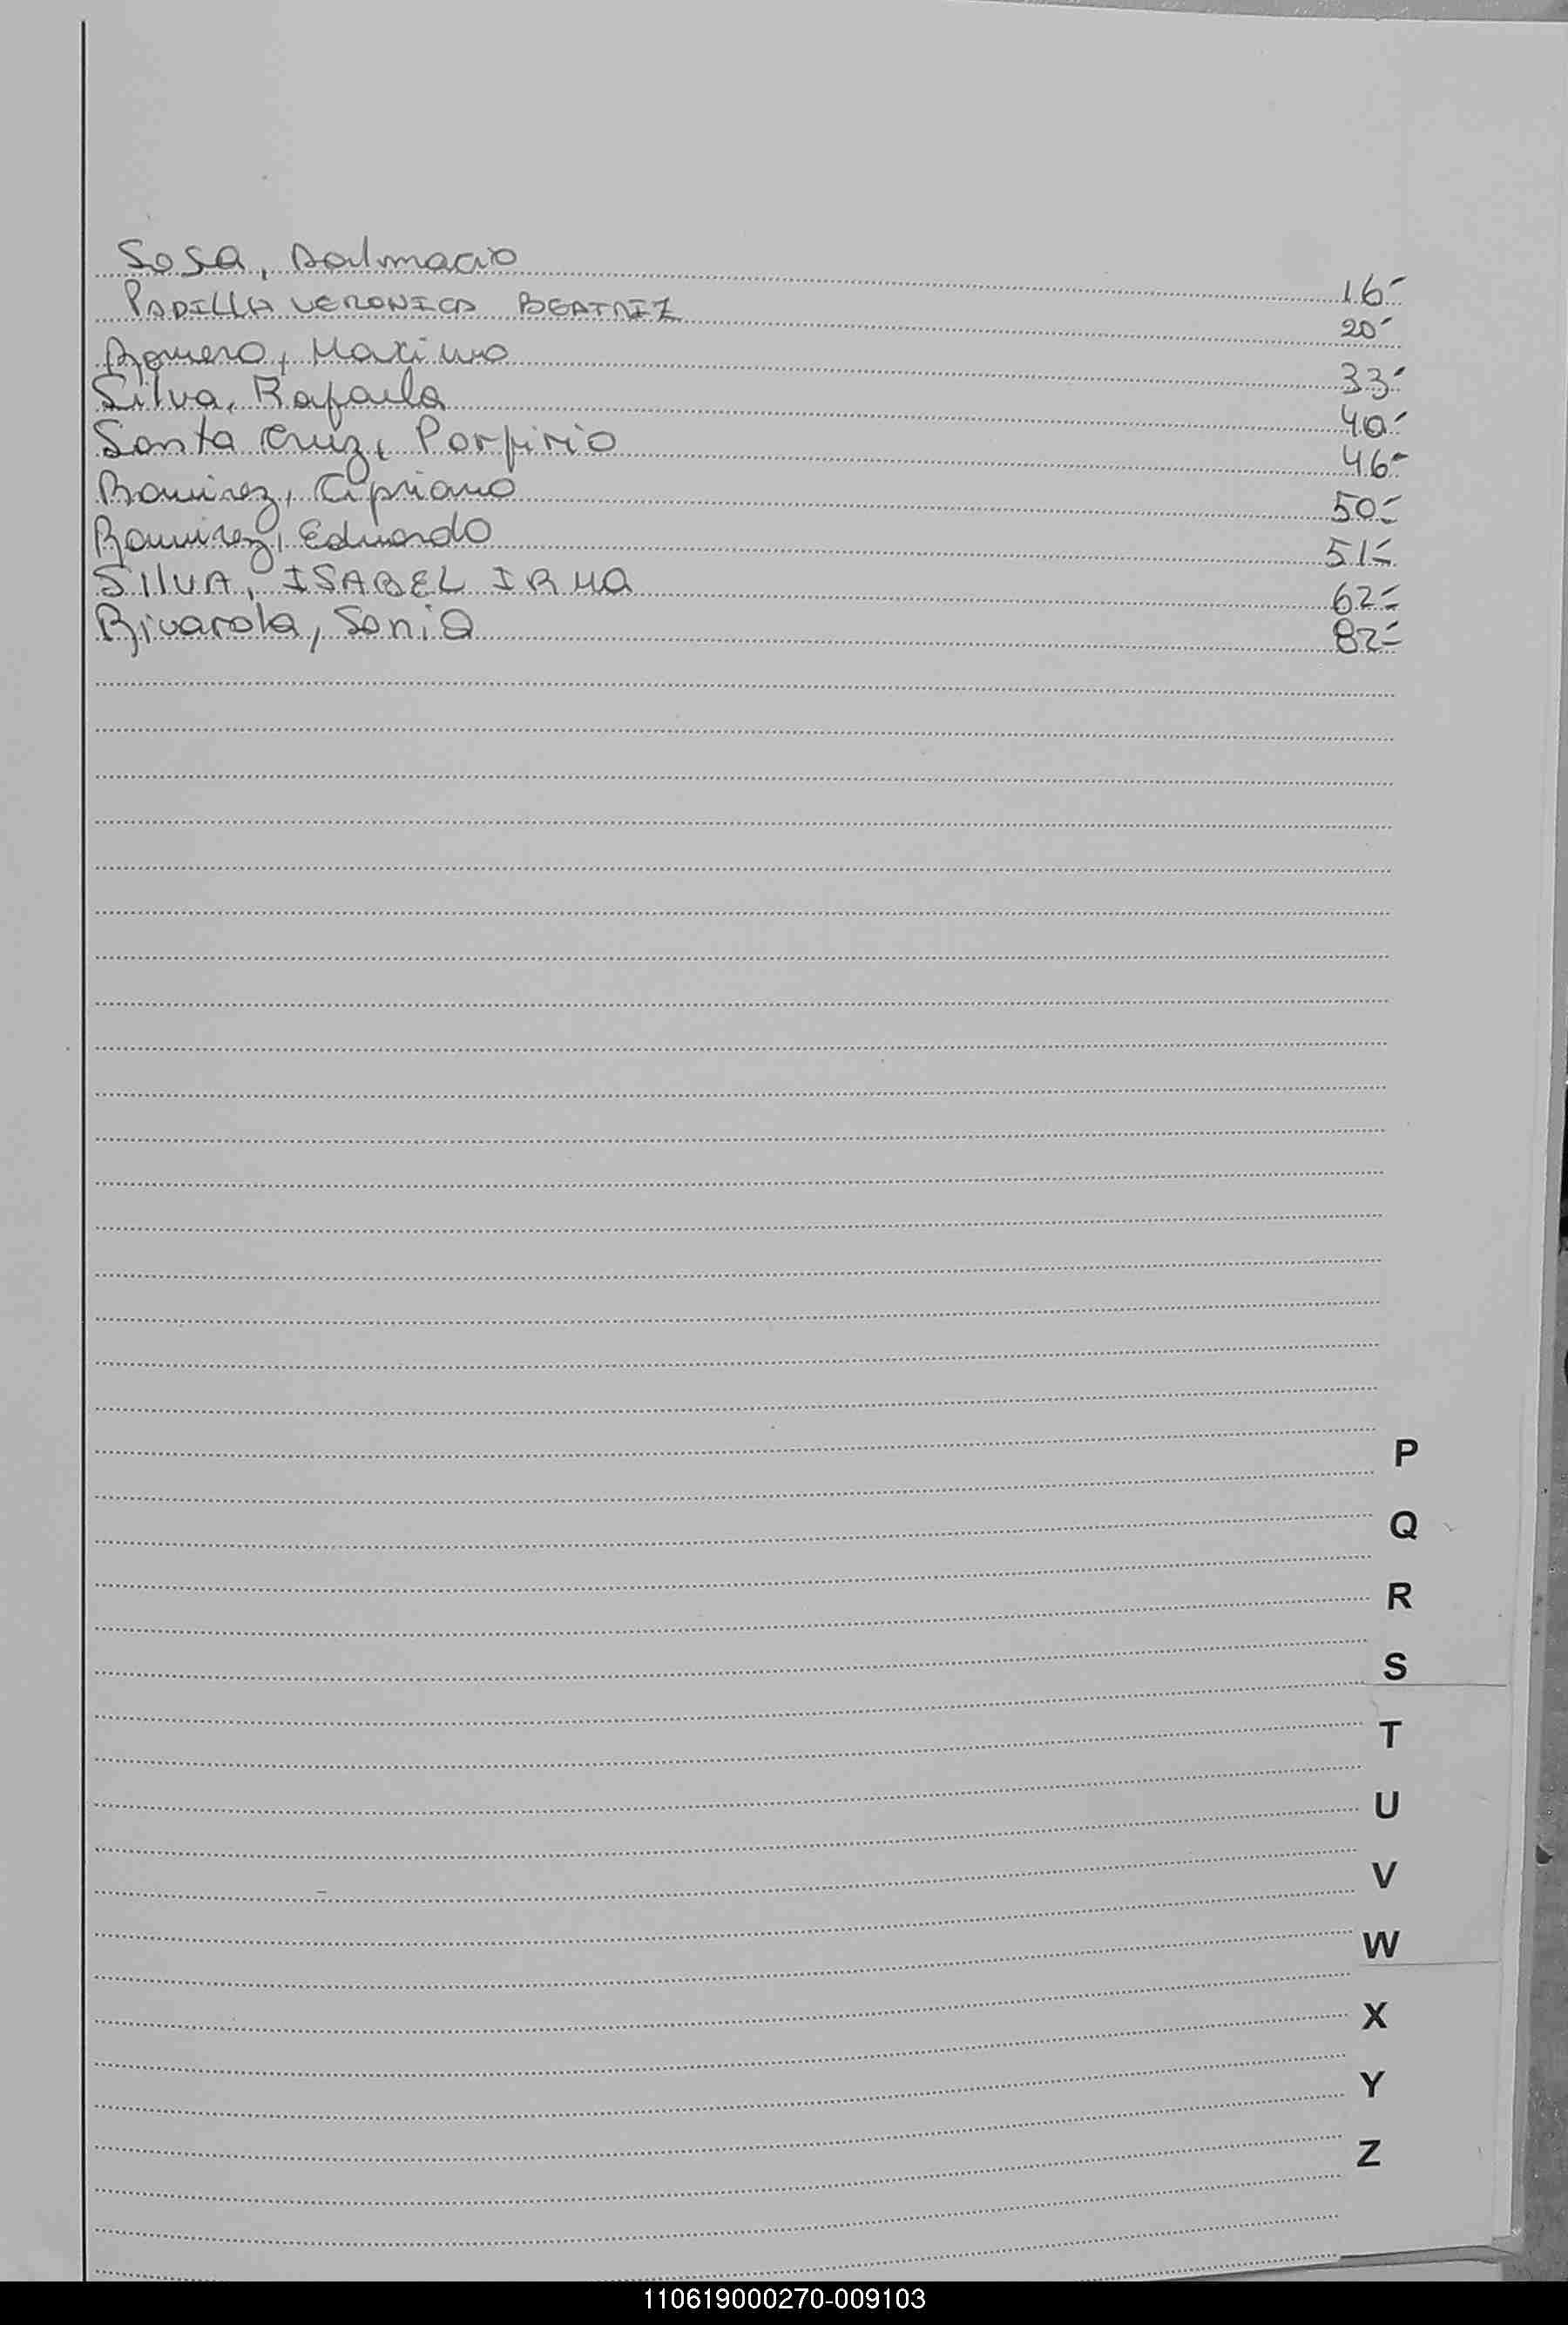 Sosa, Dalmacio 16-
PADILLA VERONICA BEATRIZ 20-
Romero, Maximo 33-
Silva, Rafaela 40-
Santa Cruz, Porfirio 46-
Ramirez, Cipriano 50-
Ramirez, Eduardo 51-
SIlVA, ISABEL IRMA 62-
Rivarola, Sonia 82-
P
Q
R
S
T
U
V
W
X
Y
Z
110619000270-009103